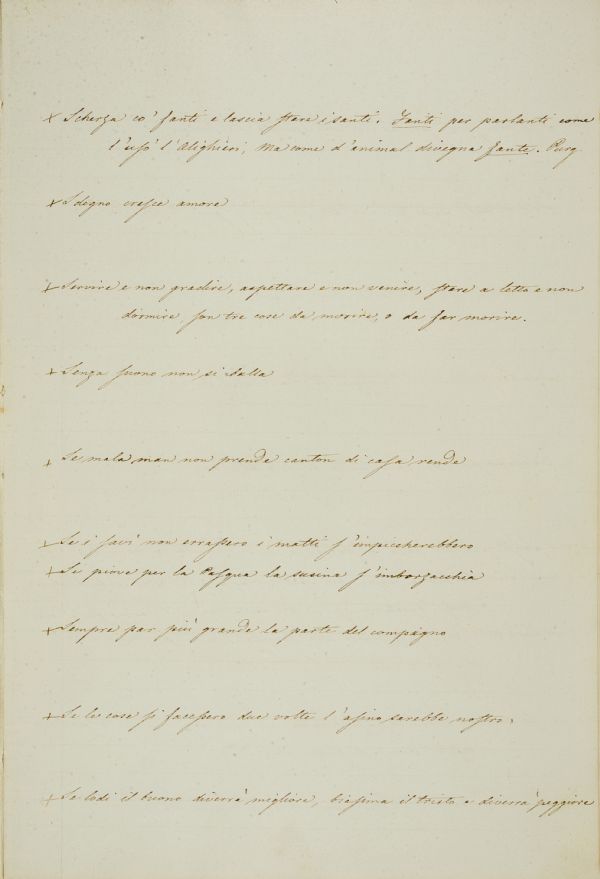 x Scherza co' fanti e lascia stare i santi. Fanti per parlanti come
l'usò l'Alighieri, Ma come d'animal divegna fante. Purg
x Sdegno cresce amore
+ Servire e non gradire, aspettare e non venire, stare a letto e non
dormire, son tre cose da morire, o da far morire.
+ Senza suono non si balla
+ Se mala man non prende canton di casa rende
+ Se i savi non errassero i matti s'impiccherebbero
+ Se piove per la Pasqua la susina s'imborzacchia
+ Sempre par più grande la parte del compagno
+ Se le cose si facessero due volte l'asino sarebbe nostro.
+ Se lodi il buono diverrà migliore, biasima il tristo e diverrà peggiore